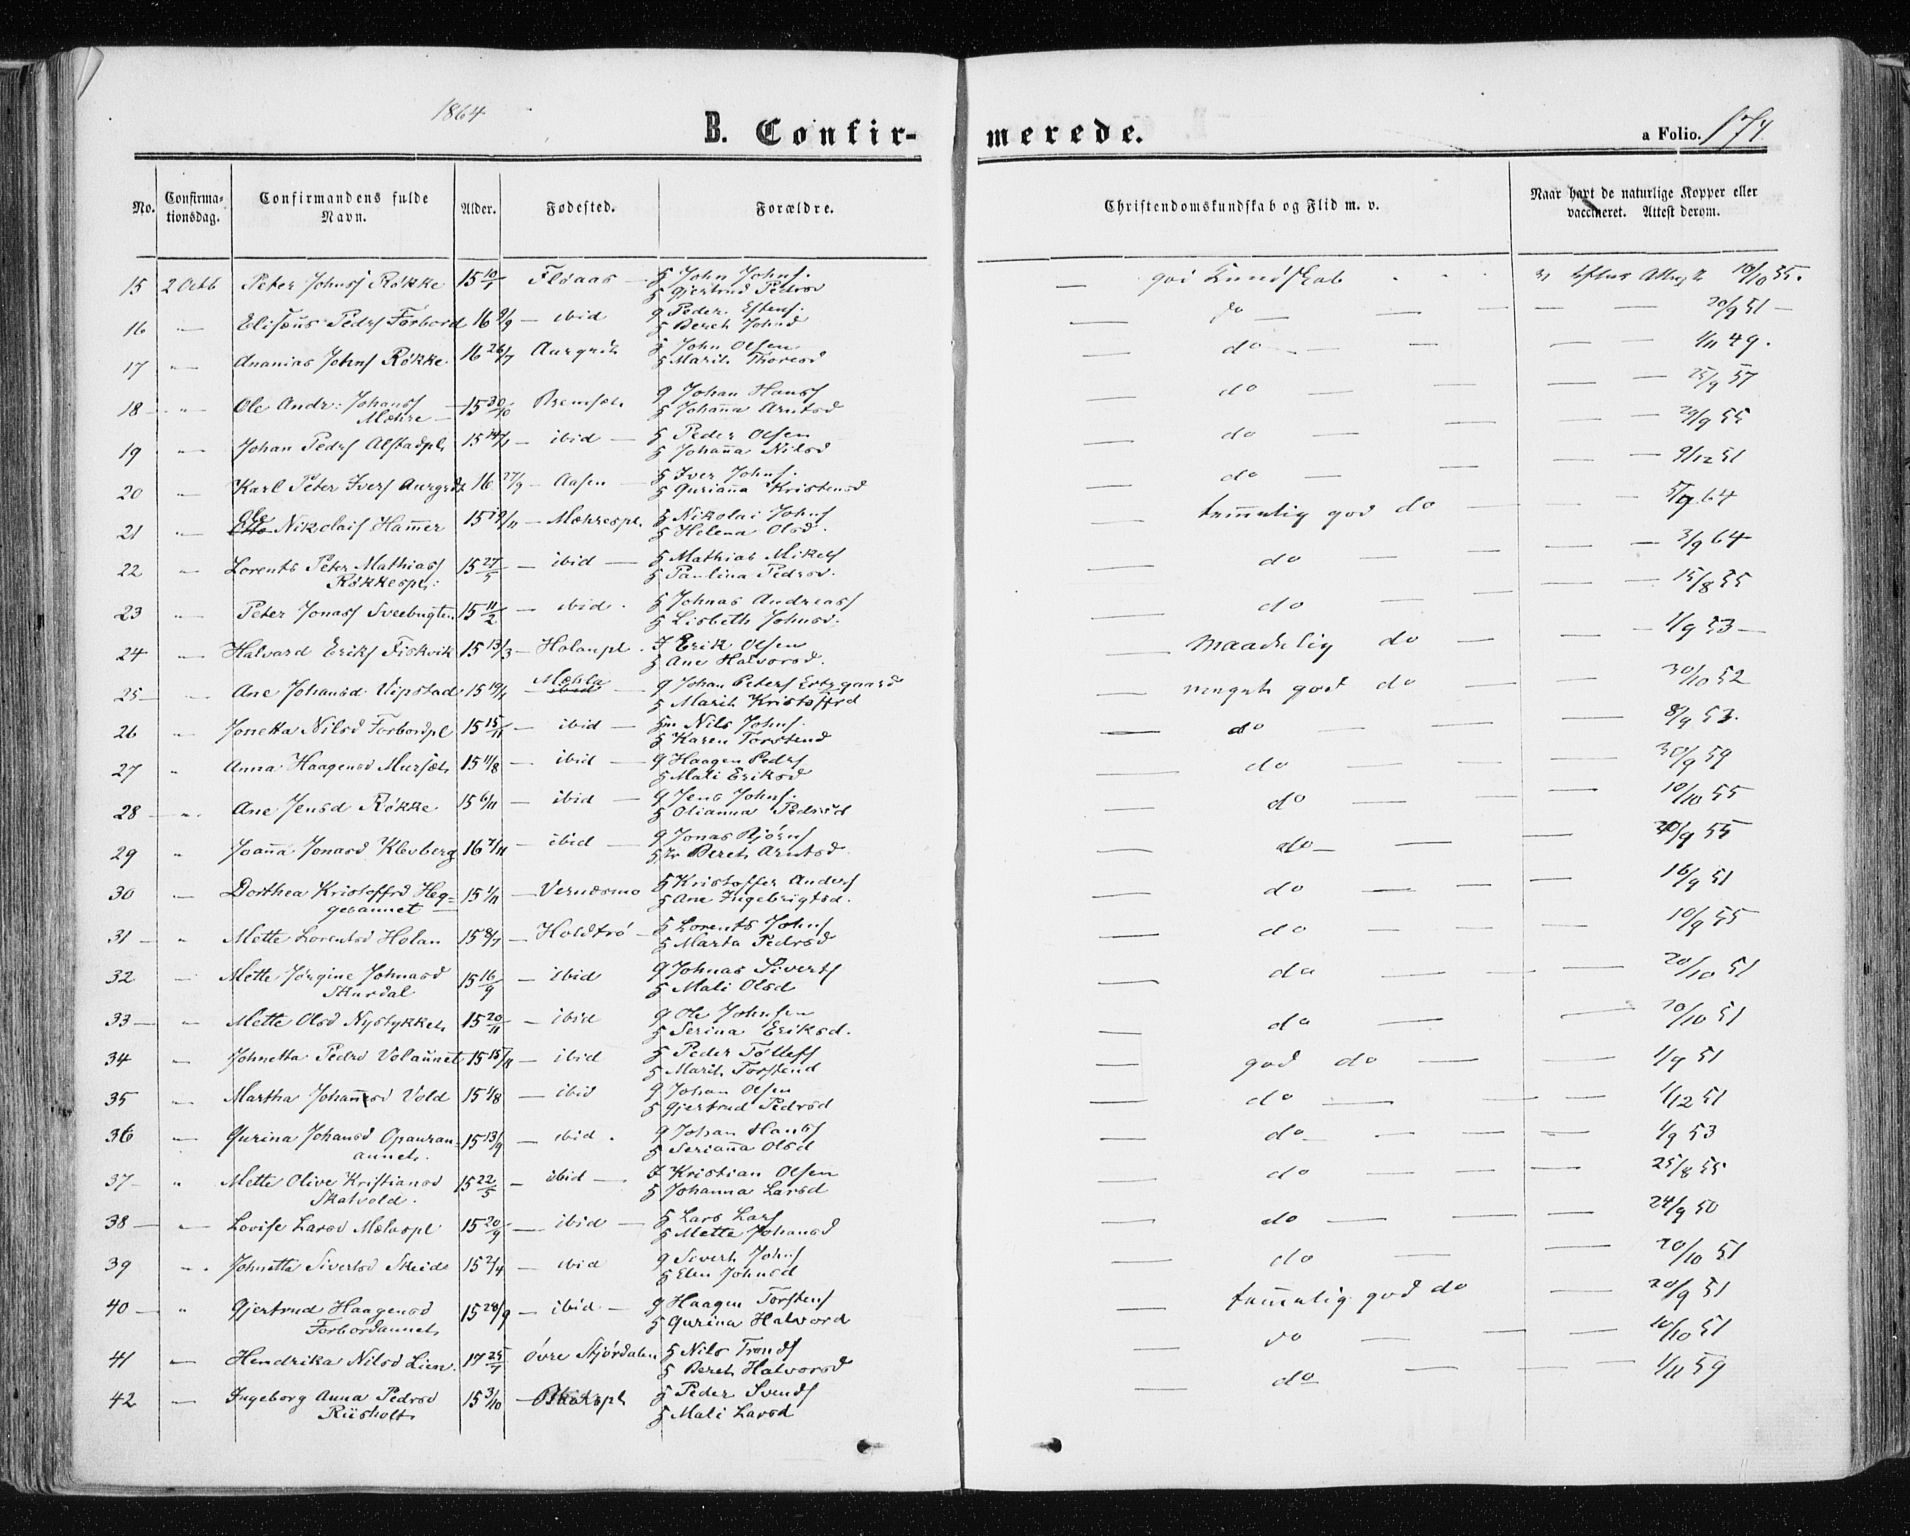 1864
B. Confir-
merede.
a Folio. 174.
No.
Confirma-
tionsdag.
Confirmandens fulde
Navn.
Alder.
Fødested.
Forældre.
Christendomskundskab og Flid m. v.
Naar havt de naturlige Kopper eller
vaccineret. Attest derom.
15 2 Octb Peter Johns Røkke 15 10/1 Flóaas § John Johns. § Gjertrud Pedrsd — god Kundskab 10/10 55.
16 — Elisæus Peds Forbord 16 9/9 — ibid g Peder Estens. § Bereth Johnsd — do — 20/9 51 —
17 — Ananias Johns Røkke 16 26/7 § John Olsen § Marith Thoresd — do — 1/11 49.
18 — Ole Andr: Johans Mæhre 15 30/10 g Johan Hans § Johaña Arntsd — do — 25/9 57
19 — Johan Peds Alstadpl 15 14/1 — ibid — § Peder Olsen § Johaña Nilsd — do — 29/9 55
20 — Karl Peter Ivers 16 27/9 — Aasen — § Iver Johns. § Guriaña Kristensd — do — 9/12 51
21 — Ole Nikolais Ham̃er 15 19/11 — Mæhrespl. § Nikolai Johns § Helena Olsd. — tem̃elig god do — 5/9 64
22 — Lorents Peter Mathias Røkkespl: 15 27/5 — ibid — § Mathias Mikels § Paulina Pedrsd. — do — 3/9 64
23 — Peter Jonas Sveebugten 15 11/2 — ibid. § Johnas Andreas § Lisbeth Johnsd. — do — 15/8 55
24 — Halvard Eriks Fiskvik 15 13/3 — Holanpl. F Erik Olsen § Ane Halvorsd. — maadelig do — 1/9 53 —
25 — Ane Johansd Vipstad 15 19/4 — Mæhla — g Johan Peters Ertzgaard § Marith Kristoffrd — meget godt do — 30/10 52
26 — Jonetta Nilsd Forbordpl 15 15/11 — ibid — §m Nils Johns. § Karen Torstensd — do — 8/9 53.
27 — Anna Haagensd 15 1/8 — ibid — g Haagen Peds § Mali Eriksd — do — 30/9 59
28 — Ane Jensd Røkke 15 6/11 — ibid — g Jens Johns. § Olianna Pedrsd — do — 10/10 55
29 — Joaña Jonasd Klevberg 16 — ibid — g Jonas Bjørns § Bereth Arntsd — do — 30/9 55
30 — Dorthea Kristoffrd Heg= gesannet — 15 1/11 — Vernæsmo § Kristoffer Anders § Ane Ingebrigtsd. — do — 16/9 51
31 — Mette Lorentsd Holan 15 8/7 — Holdtrø — § Lorents Johns § Marta Pedrsd — do — 10/9 55
32 — Mette Jørgine Johnasd Skurdal 15 16/9 — ibid g Johnas Siverts § Mali Olsd — do — 20/10 51
33 — Mette Olsd Nystykket 15 20/11 — ibid g Ole Johnsen § Serina Eriksd. — do — 20/10 51
34 — Johnetta Pedrd Volaũnet 15 15/11 — ibid § Peder Tollefs § Marith Torstensd — god do — 1/9 51
35 — Martha Johañesd Vold 15 1/8 — ibid g Johan Olsen § Gjertrud Pedrsd — do — 1/12 51
36 — Gurina Johansd Opauran= annet. 15 13/9 — ibid. g Johan Hans § Seriaña Olsd — do — 1/9 53
37 — Mette Olive Kristiansd Skatvold. 15 22/5 — ibid — F Kristian Olsen § Johanna Larsd — do — 25/8 55
38 — Lovise Larsd Mælaspl 15 20/9 — ibid — § Lars Lars § Mette Johansd — do — 24/9 50
39 — Johnetta Sivertsd Skeide 15 2/4 — ibid g Siverth Johns § Elen Johnsd — do — 20/10 51
40 — Gjertrud Haagensd Forbordannet 15 28/9 — ibid — g Haagen Torstens § Gurina Halvord — tem̃elig god do 20/9 51
41 — Hendrika Nilsd Lien. 17 25/7 Øvre Stjørdalen § Nils Tronds § Bereth Halvorsd — do — 10/10 51
42 — Ingeborg Anna Pedrsd Riisholt 15 3/10 § Peder Svends § Mali Larsd — do — 1/11 59